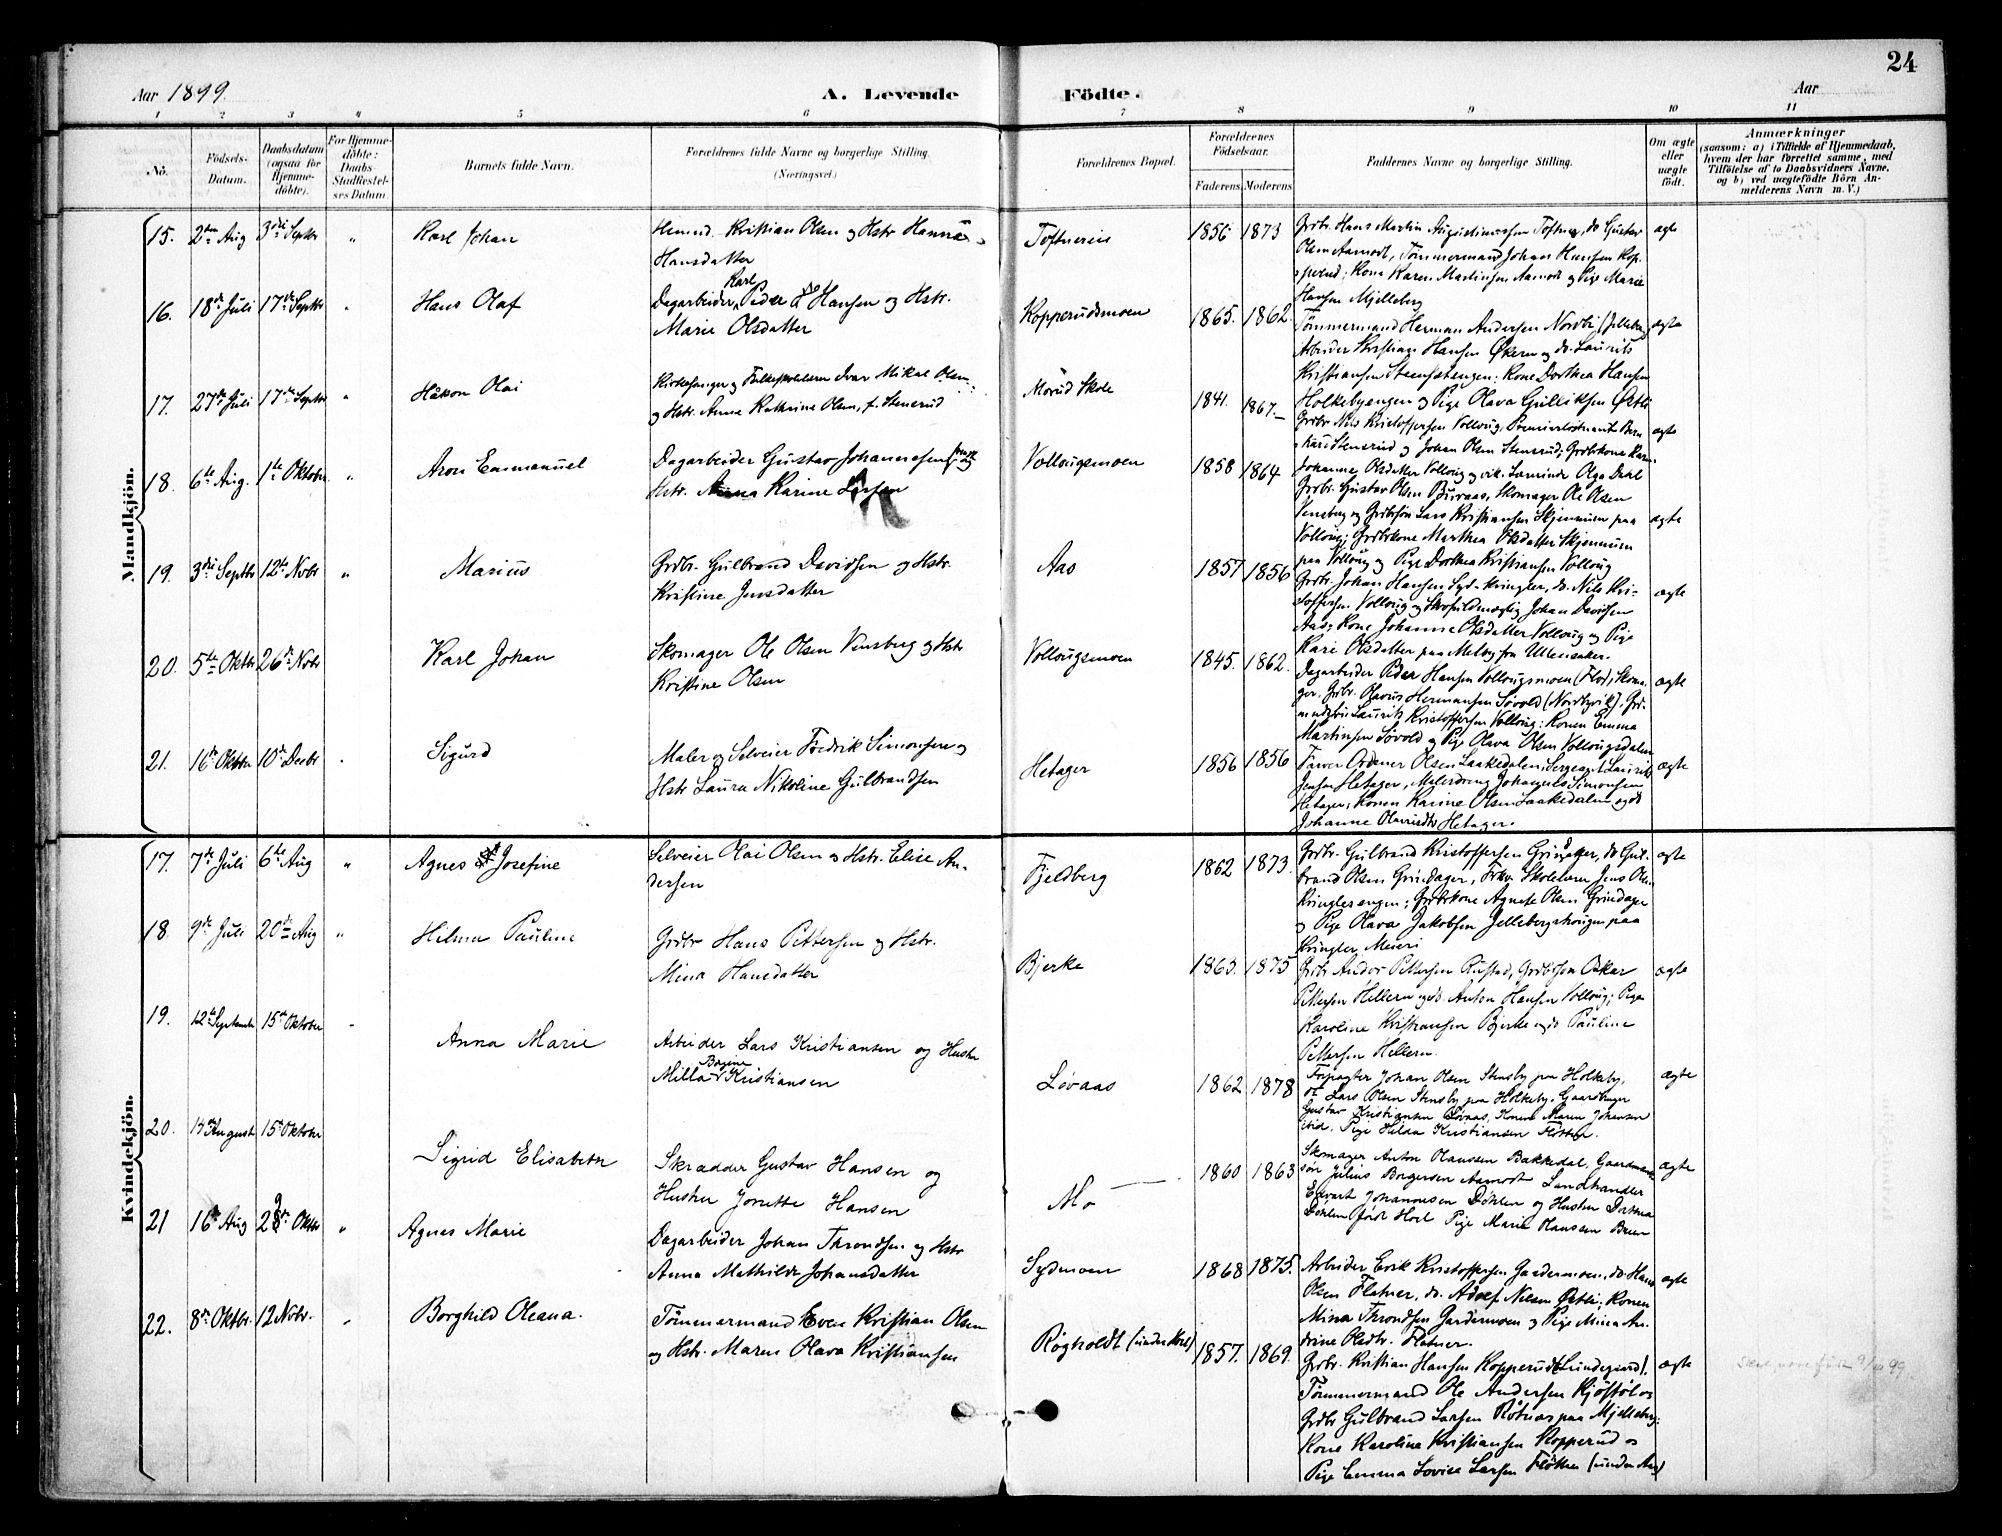 24
Aar 1899.
A. Levende Födte.
Aar
1 2 3 4 5 6 7 8 9 10 11
No.
Födsels-Datum.
Daabsdatum (ogsaa for Hjemme-døbte).
For Hjemme-døbte: Daabs-Stadfæstel-ses Datum.
Barnets fulde Navn.
Forældrenes fulde Navne og borgerlige Stilling.
(Næringsvei.)
Forældrenes Bopæl.
Forældrenes Födselsaar.
Faderens. Moderens.
Faddernes Navne og borgerlige Stilling.
Om ægte eller uægte født.
Anmærkninger
(saasom: a) i Tilfælde af Hjemmedaab,
hvem der har forrettet samme, med
Tilføielse af to Daabsvidners Navne,
og b) ved uægtefødte Börn An-
melderens Navn m. V.)
Mandkjön.
15. 2den Aug 3die Septbr " Karl Johan
Kristian Olsen og Hstr Hanna
Hansdatter
Toftnereie 1856 1873
Grdbr. Hans Martin Toftner, do Gustav
Olsen Aamodt, Tømmermand Johan Hansen Kop-
perud; Kone Karen Martinsen Aamodt og Pige Marie
Hansen Mjelleberg
ægte
16. 18de Juli 17de Septbr " Hans Olaf
Dagarbeider Karl Peder Hansen og Hstr.
Marie Olsdatter
Kopperudsmoen 1865. 1862.
Tømmermand Herman Andersen Nordbi
Arbeider Kristian Hansen Økern og do. Laurits
Kristiansen Steensstengen; Kone Dorthea Hansen
Holkebyengen og Pige Olava Gulliksen Ørtli
ægte
17. 27de Juli 17de Septbr " Håkon Olai
Kirkesanger og Ivar Mikal Olsen
og Hstr. Anna Kathrine Olsen, f. Stensrud
Morud Skole 1841. 1867.
Grdbr Nils Kristoffersen Vollaug, Premierløitnant Bern-
Stensrud og Johan Olsen Stensrud; Grdbrkone Karen
Johanne Olsdatter Vollaug og Olga Dahl
ægte
18. 6te Aug. 1te Oktober " Aron Emmanuel
Dagarbeider Gustav Johannesen og
Hstr. Anna Karine Larsen
Vollougsmoen 1858 1864
Grdbr. Gustav Olsen Buraas, Skomager Ole Olsen
Vensberg og Grdbrsøn Lars Kristiansen Skjennum paa
Vollaug; Grdbrkone Marthea Olsdatter Skjennum
paa Vollaug og Pige Dorthea Kristiansen Vollaug
ægte
19. 3die Septbr 12te Novbr " Marius
Grdbr. Gulbrand Davidsen og Hstr.
Kristine Jensdatter
Aas 1857 1856
Grdbr. Johan Hansen Syd-Kringler, do. Nils Kri-
stoffersen Vollaug og Johan Davidsen
Aas; Kone Johanne Olsdatter Vollaug og Pige
Kari Olsdatter paa Melby fra Ullensaker.
ægte
20. 5te Oktbr 26de Novbr Karl Johan
Skomager Ole Olsen Vensberg og Hstr
Kristine Olsen
Vollougsmoen 1845. 1862.
Dagarbeider Peder Hansen Vollougsmoen (Flod); Skoma-
ger. Grdbr. Olavus Hermansen Søvold
Laurits Kristoffersen Vollaug; Konen Emma
Martinsen Søvold og Pige Olava Olsen Vollougsdalen
ægte
21. 16de Oktbr 10de Decbr Sigurd
Maler og Selveier Fredrik Simonsen og
Hstr Laura Nikoline Gulbrandsen
Hetager 1856 1856
Ordener Olsen Laakedalen, Sergeant Laurits
Jensen Hetager, Malerdreng Johannes Simonsen
Hetager; Konen Karine Olsen Laakedalen og do
Johanne Hetager.
ægte
Kvindekjön.
17. 7de Juli 6te Aug " Agnes Josefine
Selveier Olai Olsen og Hstr. Elise An-
dersen
Fjeldberg 1862 1873.
Grdbr. Gulbrand Kristoffersen Grindager, do Gul-
brand Olsen Grindager, Skolelærer Jens Olsen
Kringlersengen; Grdbrkone Agnete Olsen Grindager
og Pige Olava Jakobsen Jellebergshaugen paa
Kringler Meieri
ægte
18 9de Juli 20de Aug " Hilma Pauline
Grdbr Hans Pettersen og Hstr.
Mina Hansdatter
Bjerke 1863. 1875
Grdbr Andor Pettersen Rustad, Grdbrsøn Oskar
Pettersen Hellern og do. Anton Hansen Vollaug; Pige
Karoline Kristiansen Bjerke og do Pauline
Pettersen Hellern.
ægte
19. 12te September 15de Oktober Anna Marie
Arbeider Lars Kristiansen og Hustru
Milla Bogine Kristiansen
Løvaas 1862 1878
Forpagter Johan Olsen Stensby paa Holkeby,
Lars Olsen Stensby paa Holkeby. Gaardbruger
Gustav Kristiansen Løvaas, Konen Maren Johansen
ibid. Pige Hilda Kristiansen
ægte
20. 14de August 15de Oktober Sigrid Elisabeth
Skrædder Gustav Hansen og
Hustru Jonette Hansen
Mo 1860 1863
Skomager Anton Olaussen Bakkedal, Gaardmands-
søn Julius Borgersen Aamodt Landhandler
Edvart Johannesen Døhlen og Hustru Dorthea
Døhlen født Hoel Pige Marie Hanssen Bruer
ægte
21 16de Aug 29de Oktbr " Agnes Marie
Dagarbeider Johan Throndsen og Hstr
Anna Mathilde Johansdatter
Sydmoen 1868 1875.
Arbeider Erik Kristoffersen Gardermoen, do. Hans
Olsen Flatner, do. Adolf Nilsen Ørtli; Konen
Mina Throndsen Gardermoen og Pige Mina An-
drine Olsdtr. Flatner.
ægte
22. 8de Oktbr. 12 Novbr. Borghild Oleana.
Tømmermand Even Kristian Olsen
og Hstr. Maren Olava Kristiansen
Røgholdt 1857. 1869.
Grdbr. Kristian Hansen Kopperud (Lundegaard).
Tømmermand Ole Andersen Kjøstøl og
Grdbr Gulbrand Larsen Røtnes paa Mjelleberg;
Kone Karoline Kristiansen Kopperud og
Pige Emma Lovise Larsen
ægte